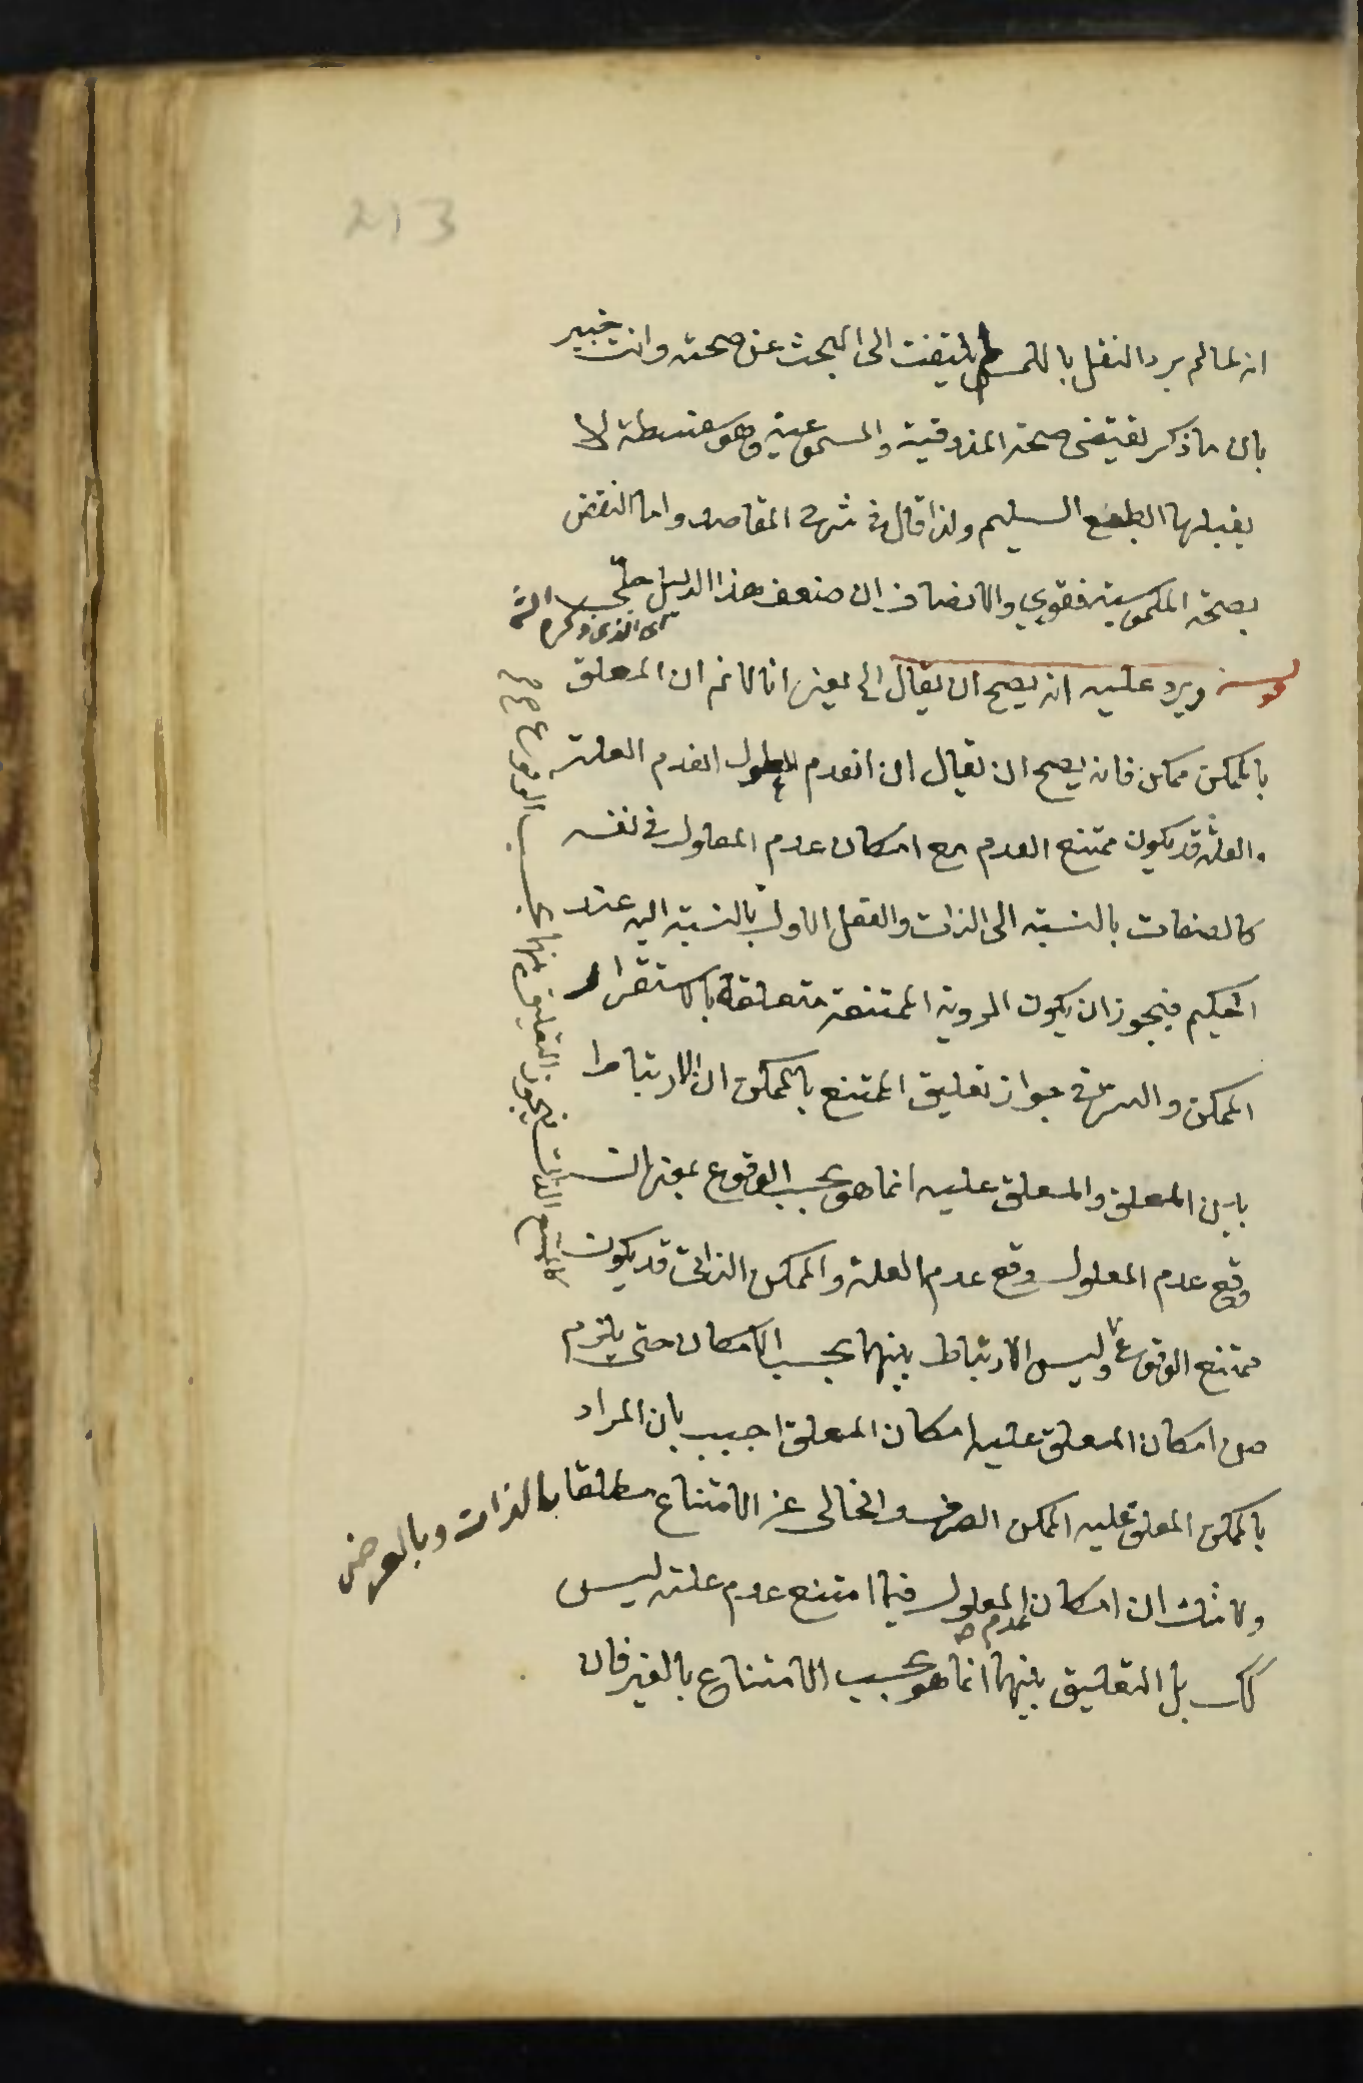 213
انه لما لم يرد النقل باللمس لم يلتفت الى البحث عن صحته وانت خبير
بان ما ذكر يقتضى صحة المذوقية والمسموعية وهو سفسطة لا
يقبلها الطبع السليم ولذا قال في شرح المقاصد واما النقض
بصحة الملموسية فقوي والانصاف ان ضعف هذا الدليل جلى
اى الذى ذكره الش
قوله ويرد عليه انه يصح ان يقال الى يعنى انا لا نم ان المعلق
بالممكن ممكن فانه يصح ان يقال ان انعدم المعلول انعدم العلة
والعلة قد يكون ممتنع العدم مع امكان عدم المعلول في نفسه
كالصفات بالنسبة الى الذات والعقل الاول بالنسبة اليه عند
الحكيم فيجوز ان يكون الروية الممتنعة متعلقة باستقرار
الممكن والسر في جواز تعليق الممتنع بالممكن ان الارتباط
بين المعلق والمعلق عليه انما هو بحسب الوقوع بمعنى ان
وقع عدم المعلول وقع عدم العلة والممكن الذاتى قد يكون
ممتنع الوقوع وليس الارتباط بينهما بحسب الامكان حتى يلزم
من امكان المعلق عليه امكان المعلق اجيب بان المراد
بالممكن المعلق عليه الممكن الصرف والخالى عن الامتناع مطلقا بالذات وبالعرض
ولا شك ان امكان عدم المعلول فيما امتنع عدم علته ليس
كك بل التعليق بينهما انما هو بحسب الامتناع بالغير فان
كالممتنع الذاتى فيجوز التعليق بينهما بحسب الوقوع